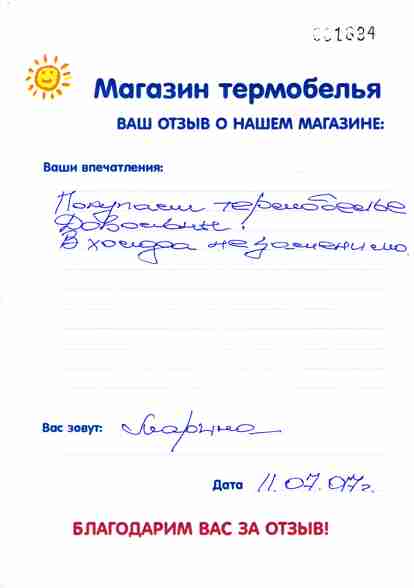 001634
Магазин термобелья
ВАШ ОТЗЫВ О НАШЕМ МАГАЗИНЕ:
Ваши впечатления:
Покупаем термобелье
Довольны!
В холода незаменимо.
Вас зовут: Марина
Дата 11.07.07г.
БЛАГОДАРИМ ВАС ЗА ОТЗЫВ!